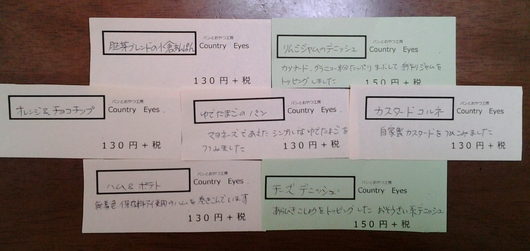 胚芽ブレンドの小倉あんぱん
パンとおやつ工房
Country Eyes
130円+税
りんごジャムのデニッシュ
パンとおやつ工房
Country Eyes
カスタード、グラニュー糖
りんごジャムを
トッピングしました
150円+税
オレンジ&チョコチップ
パンとおやつ工房
Country Eyes
130円+税
ゆでたまごのパン
パンとおやつ工房
Country Eyes
マヨネーズであえたシンプルなゆでたまごを
つつみました
130円+税
カスタードコルネ
パンとおやつ工房
Country Eyes
自家製カスタードをつめこみました
130円+税
ハム&ポテト
パンとおやつ工房
Country Eyes
無着色 保存料不使用のハムを巻きこんでいます
130円+税
チーズデニッシュ
パンとおやつ工房
Country Eyes
あらびきこしょうをトッピングした おそうざい系デニッシュ
150円+税